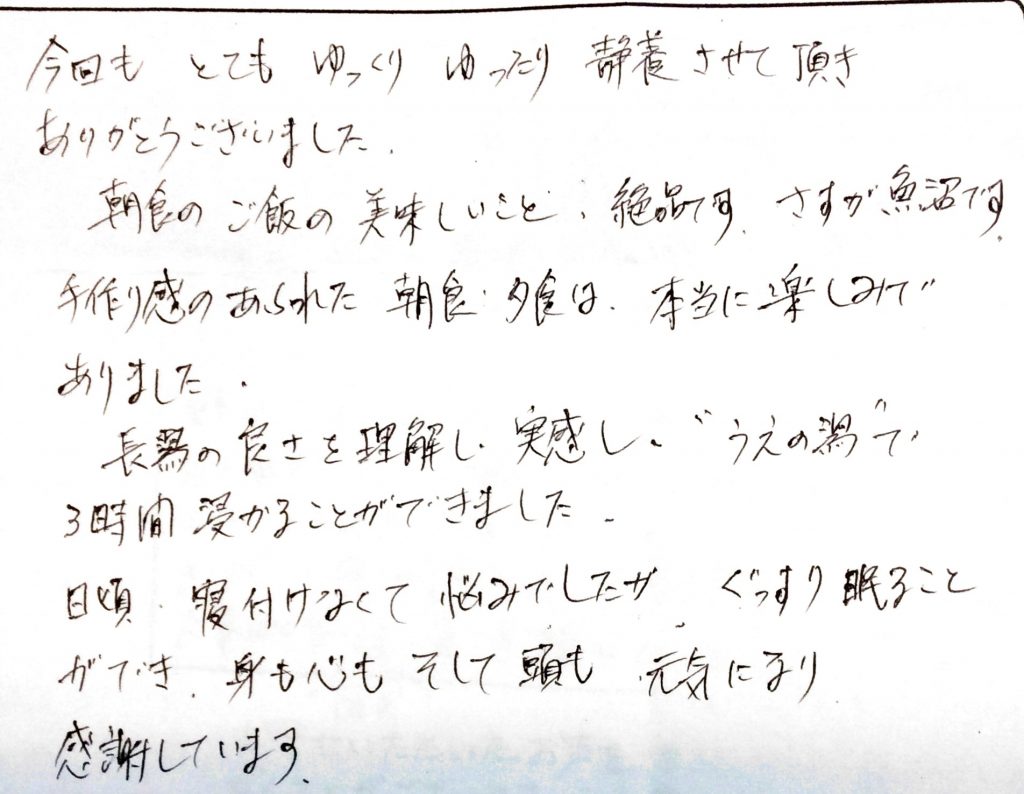 今回も とても ゆっくり ゆったり 静養させて頂き
ありがとうございました.
朝食の ご飯の 美味しいこと、絶品です. さすが魚沼です.
手作り感のあふれた 朝食・夕食は、本当に楽しみで
ありました.
長湯の良さを理解し、実感し、"うえの湯"で
3時間 浸かることができました.
日頃、寝付けなくて 悩みでしたが ぐっすり眠ること
ができ、身も心も そして 頭も 元気になり
感謝しています.